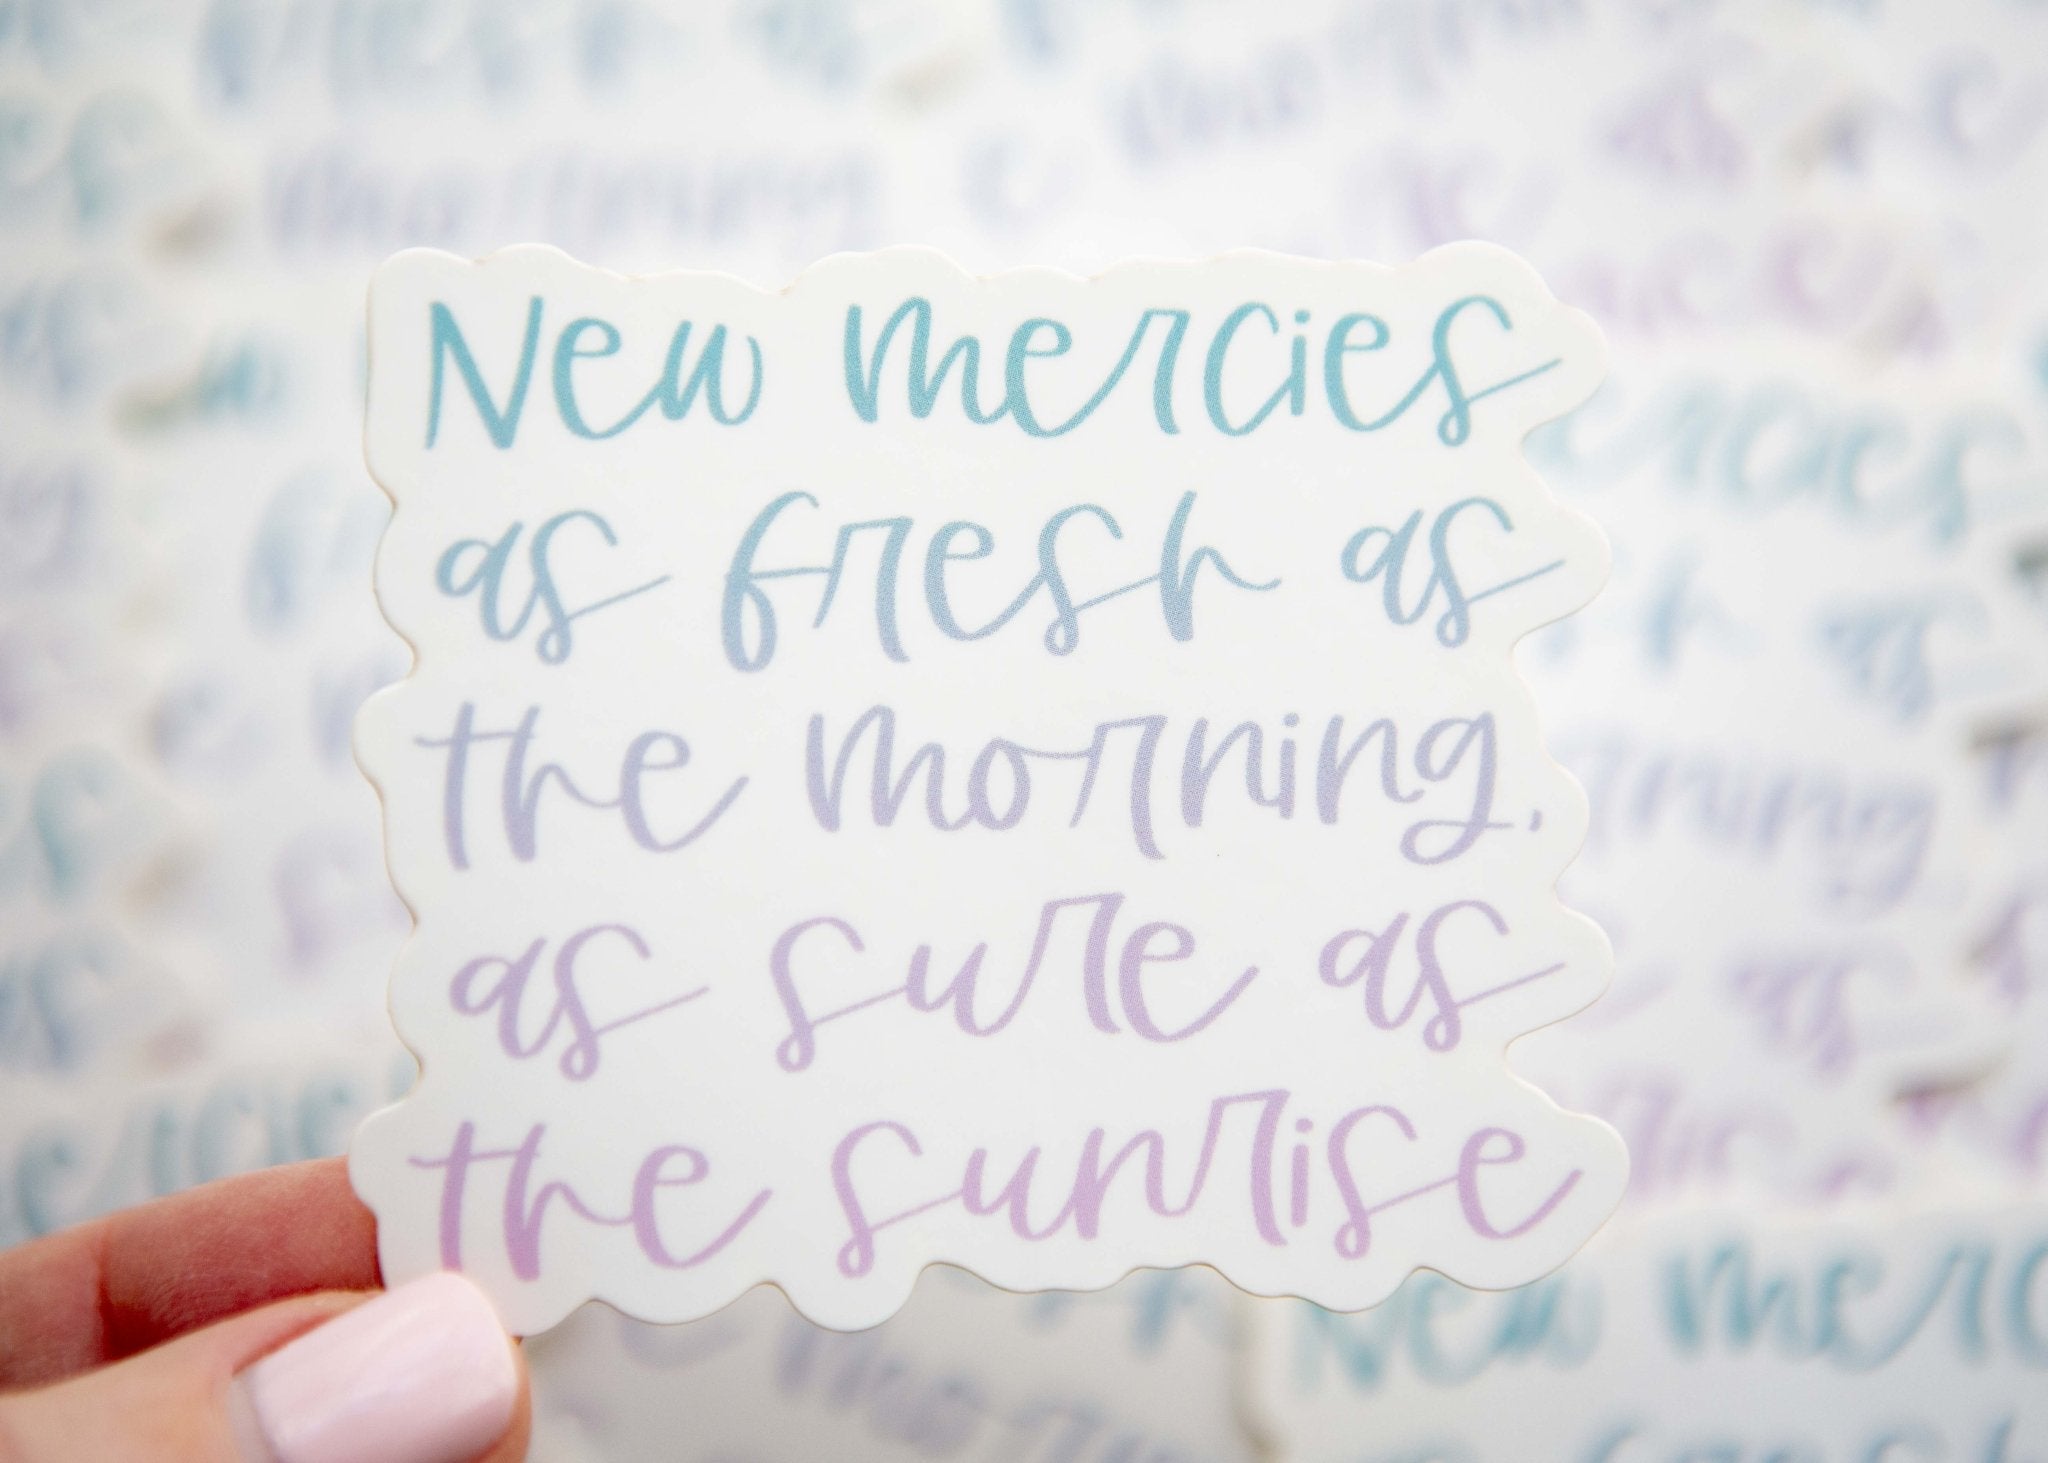 New mercies
as fresh as
the morning,
as sure as
the sunrise